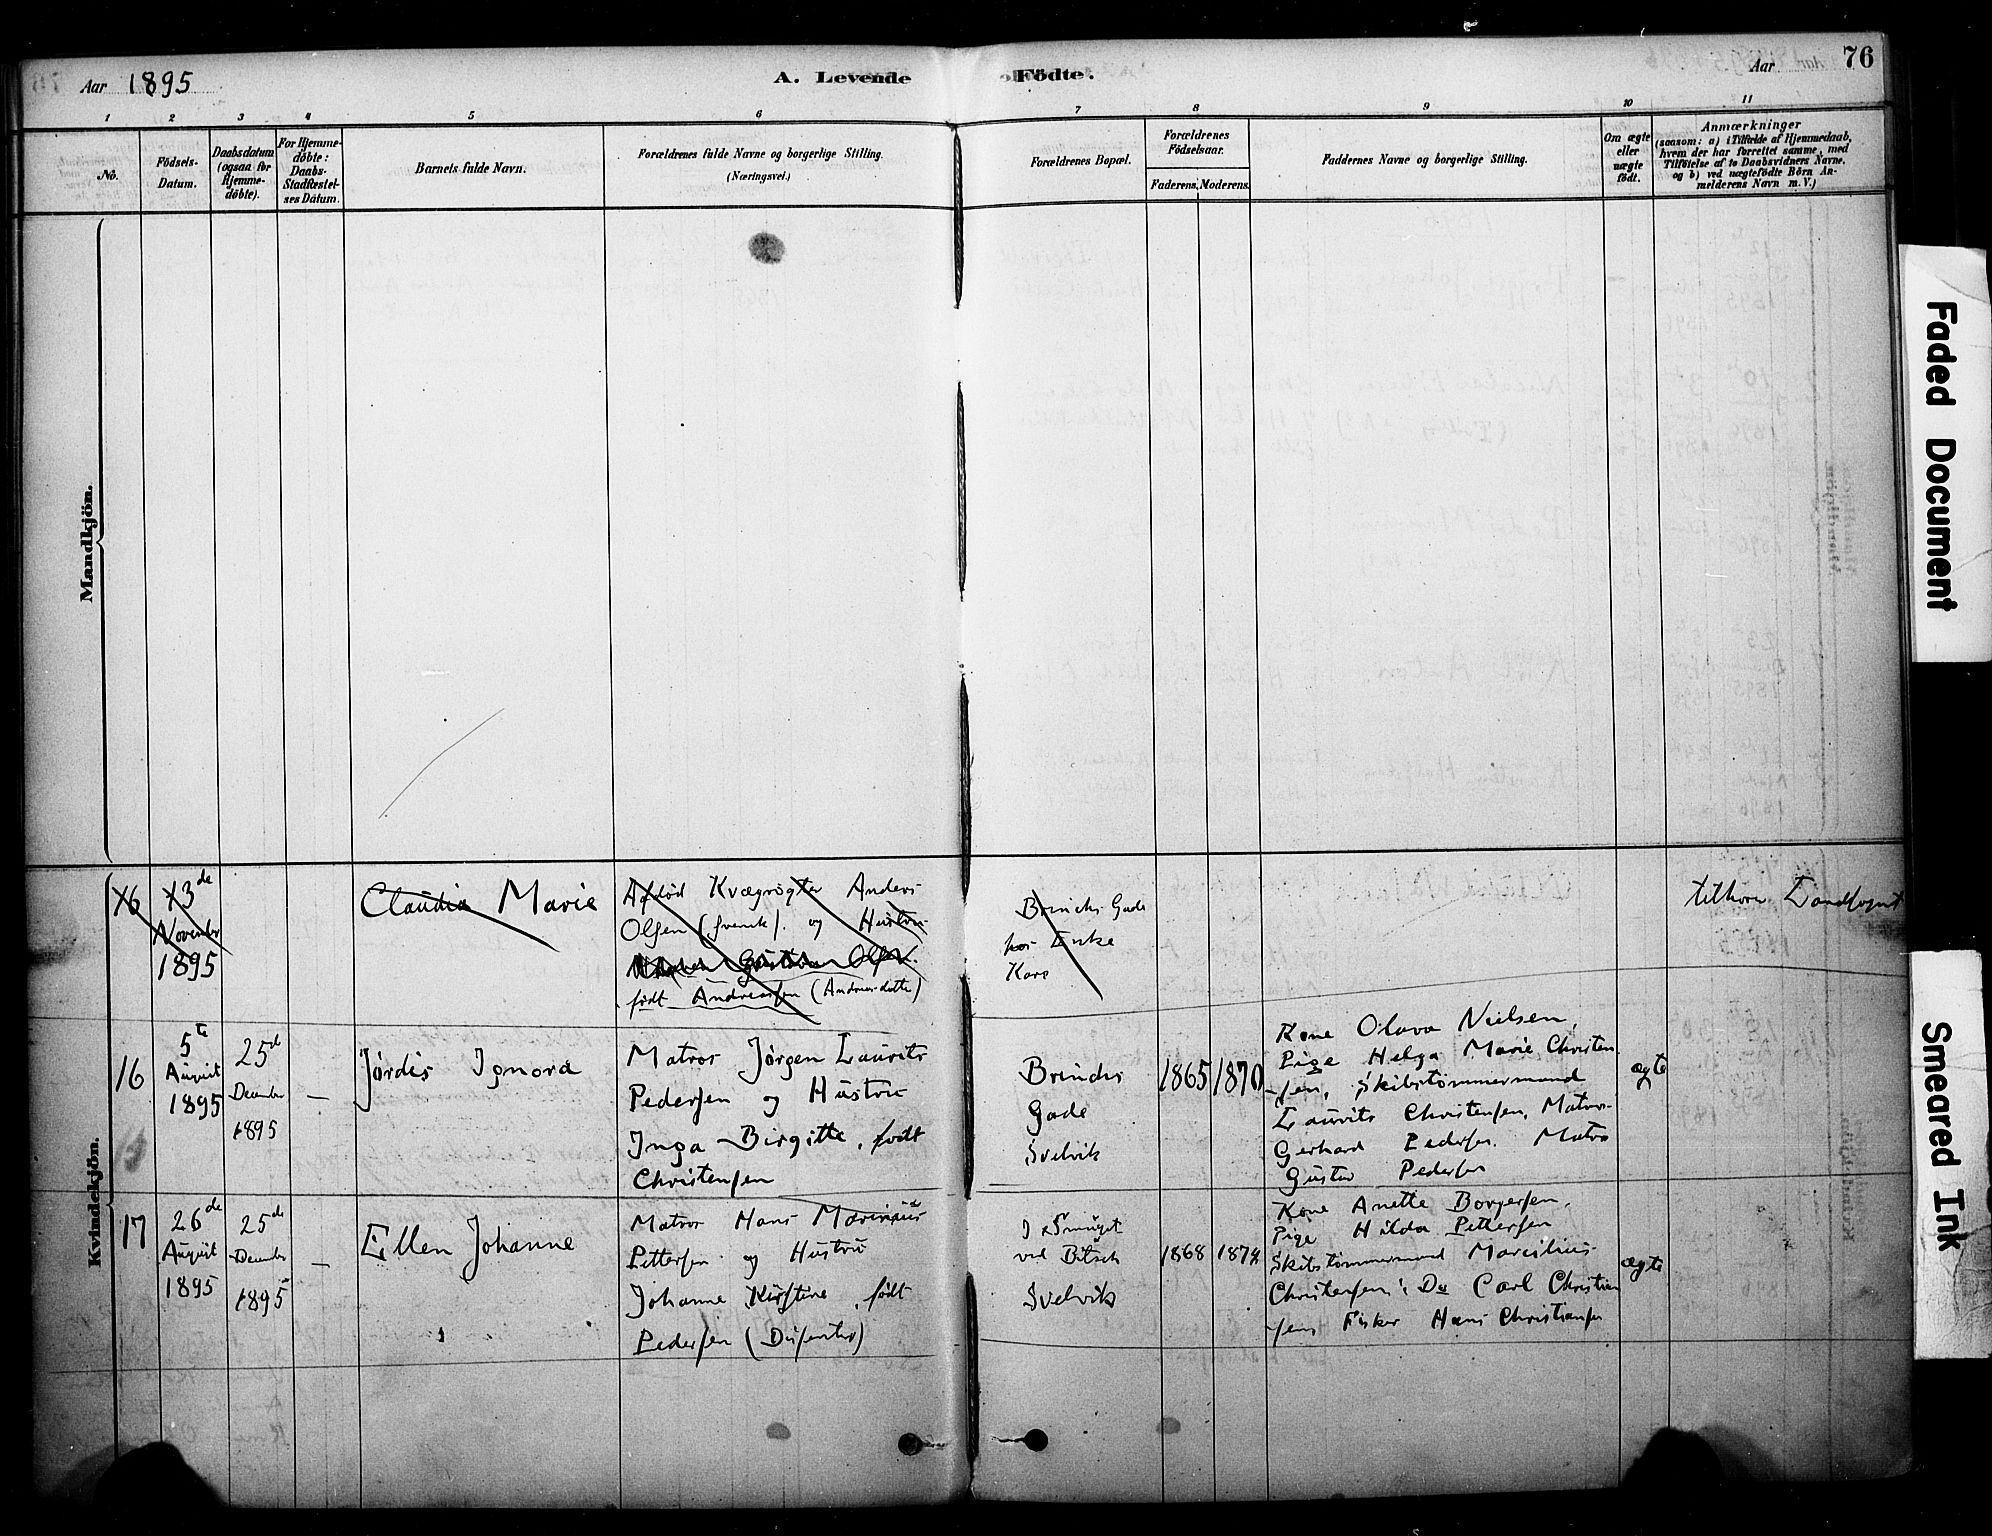 Aar 1895
A. Levende Födte.
Aar
76
1 2 3 4 5 6 7 8 9 10 11
No.
Födsels-Datum.
Daabsdatum (ogsaa for Hjemme-döbte).
For Hjemme-döbte: Daabs-Stadfæstel-ses Datum.
Barnets fulde Navn.
Forældrenes fulde Navne og borgerlige Stilling.
(Næringsvei.)
Forældrenes Bopæl.
Forældrenes Födselsaar.
Faderens. Moderens.
Faddernes Navne og borgerlige Stilling.
Om ægte eller uægte födt.
Anmærkninger
(saasom: a) i Tilfælde af Hjemmedaab,
hvem der har forrettet samme, med
Tilföielse af to Daabsvidners Navne,
og b) ved uægtefödte Börn An-
melderens Navn m.V.)
Mandkjön.
Kvindekjön.
16
13de
November
1895
Claudia Marie
Afdød Kvægrøgter Anders
Olsen (svensk). og Hustru
født Andreassen (Andreasdatter)
Brinchs Gade
hos Enke
tilhører Landsognet
16
5te
August
1895
25de
December
1895
—
Jørdis Ignora
Matros Jørgen Laurits
Pedersen og Hustru
Inga Birgitte, født
Christensen
Brinchs
Gade
Svelvik
1865
1870
Kone Olava Nielsen,
Pige Helga Marie Christen-
sen, Skibstømmermand
Laurits Christensen, Matros
Gerhard Pedersen. Matros
Gustav Pedersen
ægte
17
26de
August
1895
25de
December
1895
—
Ellen Johanne
Matros Hans Marinius
Pettersen og Hustru
Johanne Kirstine, født
Pedersen
I Smuget
ved Bitsch
Svelvik
1868
1872
Kone Anette Borgersen,
Pige Hilda Pettersen
Skibstømmermand Marcilius
Christensen, Do Carl Christian
sen, Fisker Hans Christiansen
ægte
Faded Document
Smeared Ink